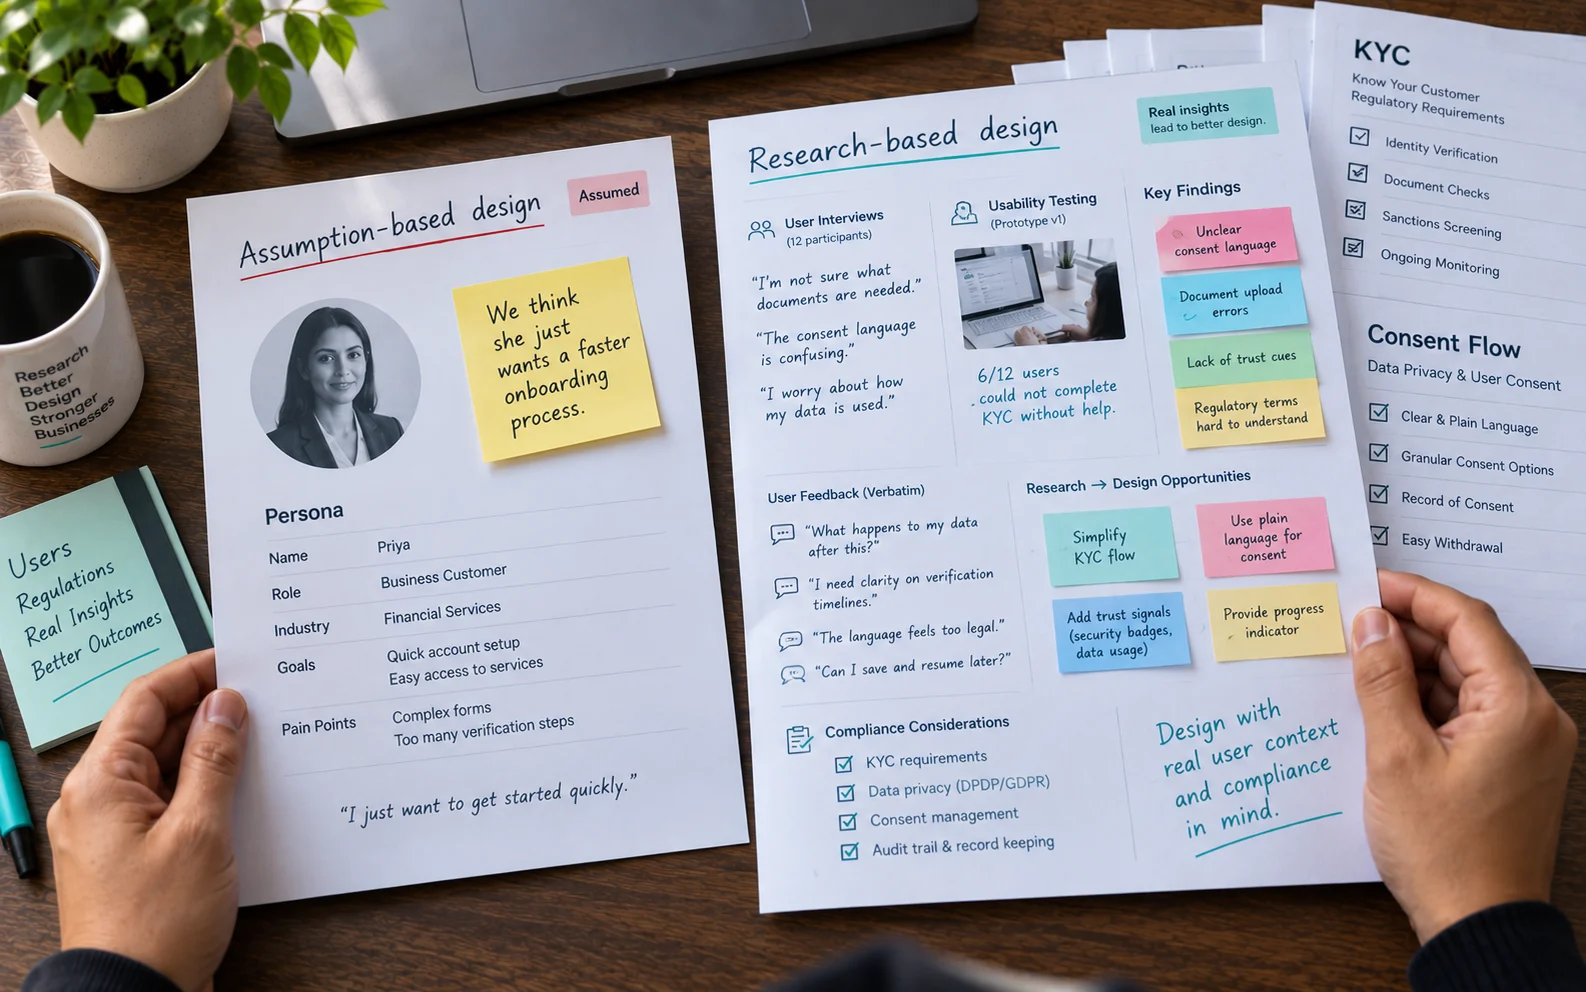 Research
Better
Design
Stronger
Businesses
Users
Regulations
Real Insights
Better Outcomes
Assumption-based design
Assumed
We think
she just
wants a faster
onboarding
process.
Persona
Name Priya
Role Business Customer
Industry Financial Services
Goals Quick account setup
Easy access to services
Pain Points Complex forms
Too many verification steps
“I just want to get started quickly.”
Research-based design
Real insights
lead to better design.
User Interviews
(12 participants)
“I’m not sure what
documents are needed.”
“The consent language
is confusing.”
“I worry about how
my data is used.”
Usability Testing
(Prototype v1)
6/12 users
could not complete
KYC without help.
Key Findings
Unclear
consent language
Document upload
errors
Lack of trust cues
Regulatory terms
hard to understand
User Feedback (Verbatim)
“What happens to my data
after this?”
“I need clarity on verification
timelines.”
“The language feels too legal.”
“Can I save and resume later?”
Research → Design Opportunities
Simplify
KYC flow
Use plain
language for
consent
Add trust signals
(security badges,
data usage)
Provide progress
indicator
Compliance Considerations
KYC requirements
Data privacy (DPDP/GDPR)
Consent management
Audit trail & record keeping
Design with
real user context
and compliance
in mind.
KYC
Know Your Customer
Regulatory Requirements
Identity Verification
Document Checks
Sanctions Screening
Ongoing Monitoring
Consent Flow
Data Privacy & User Consent
Clear & Plain Language
Granular Consent Options
Record of Consent
Easy Withdrawal